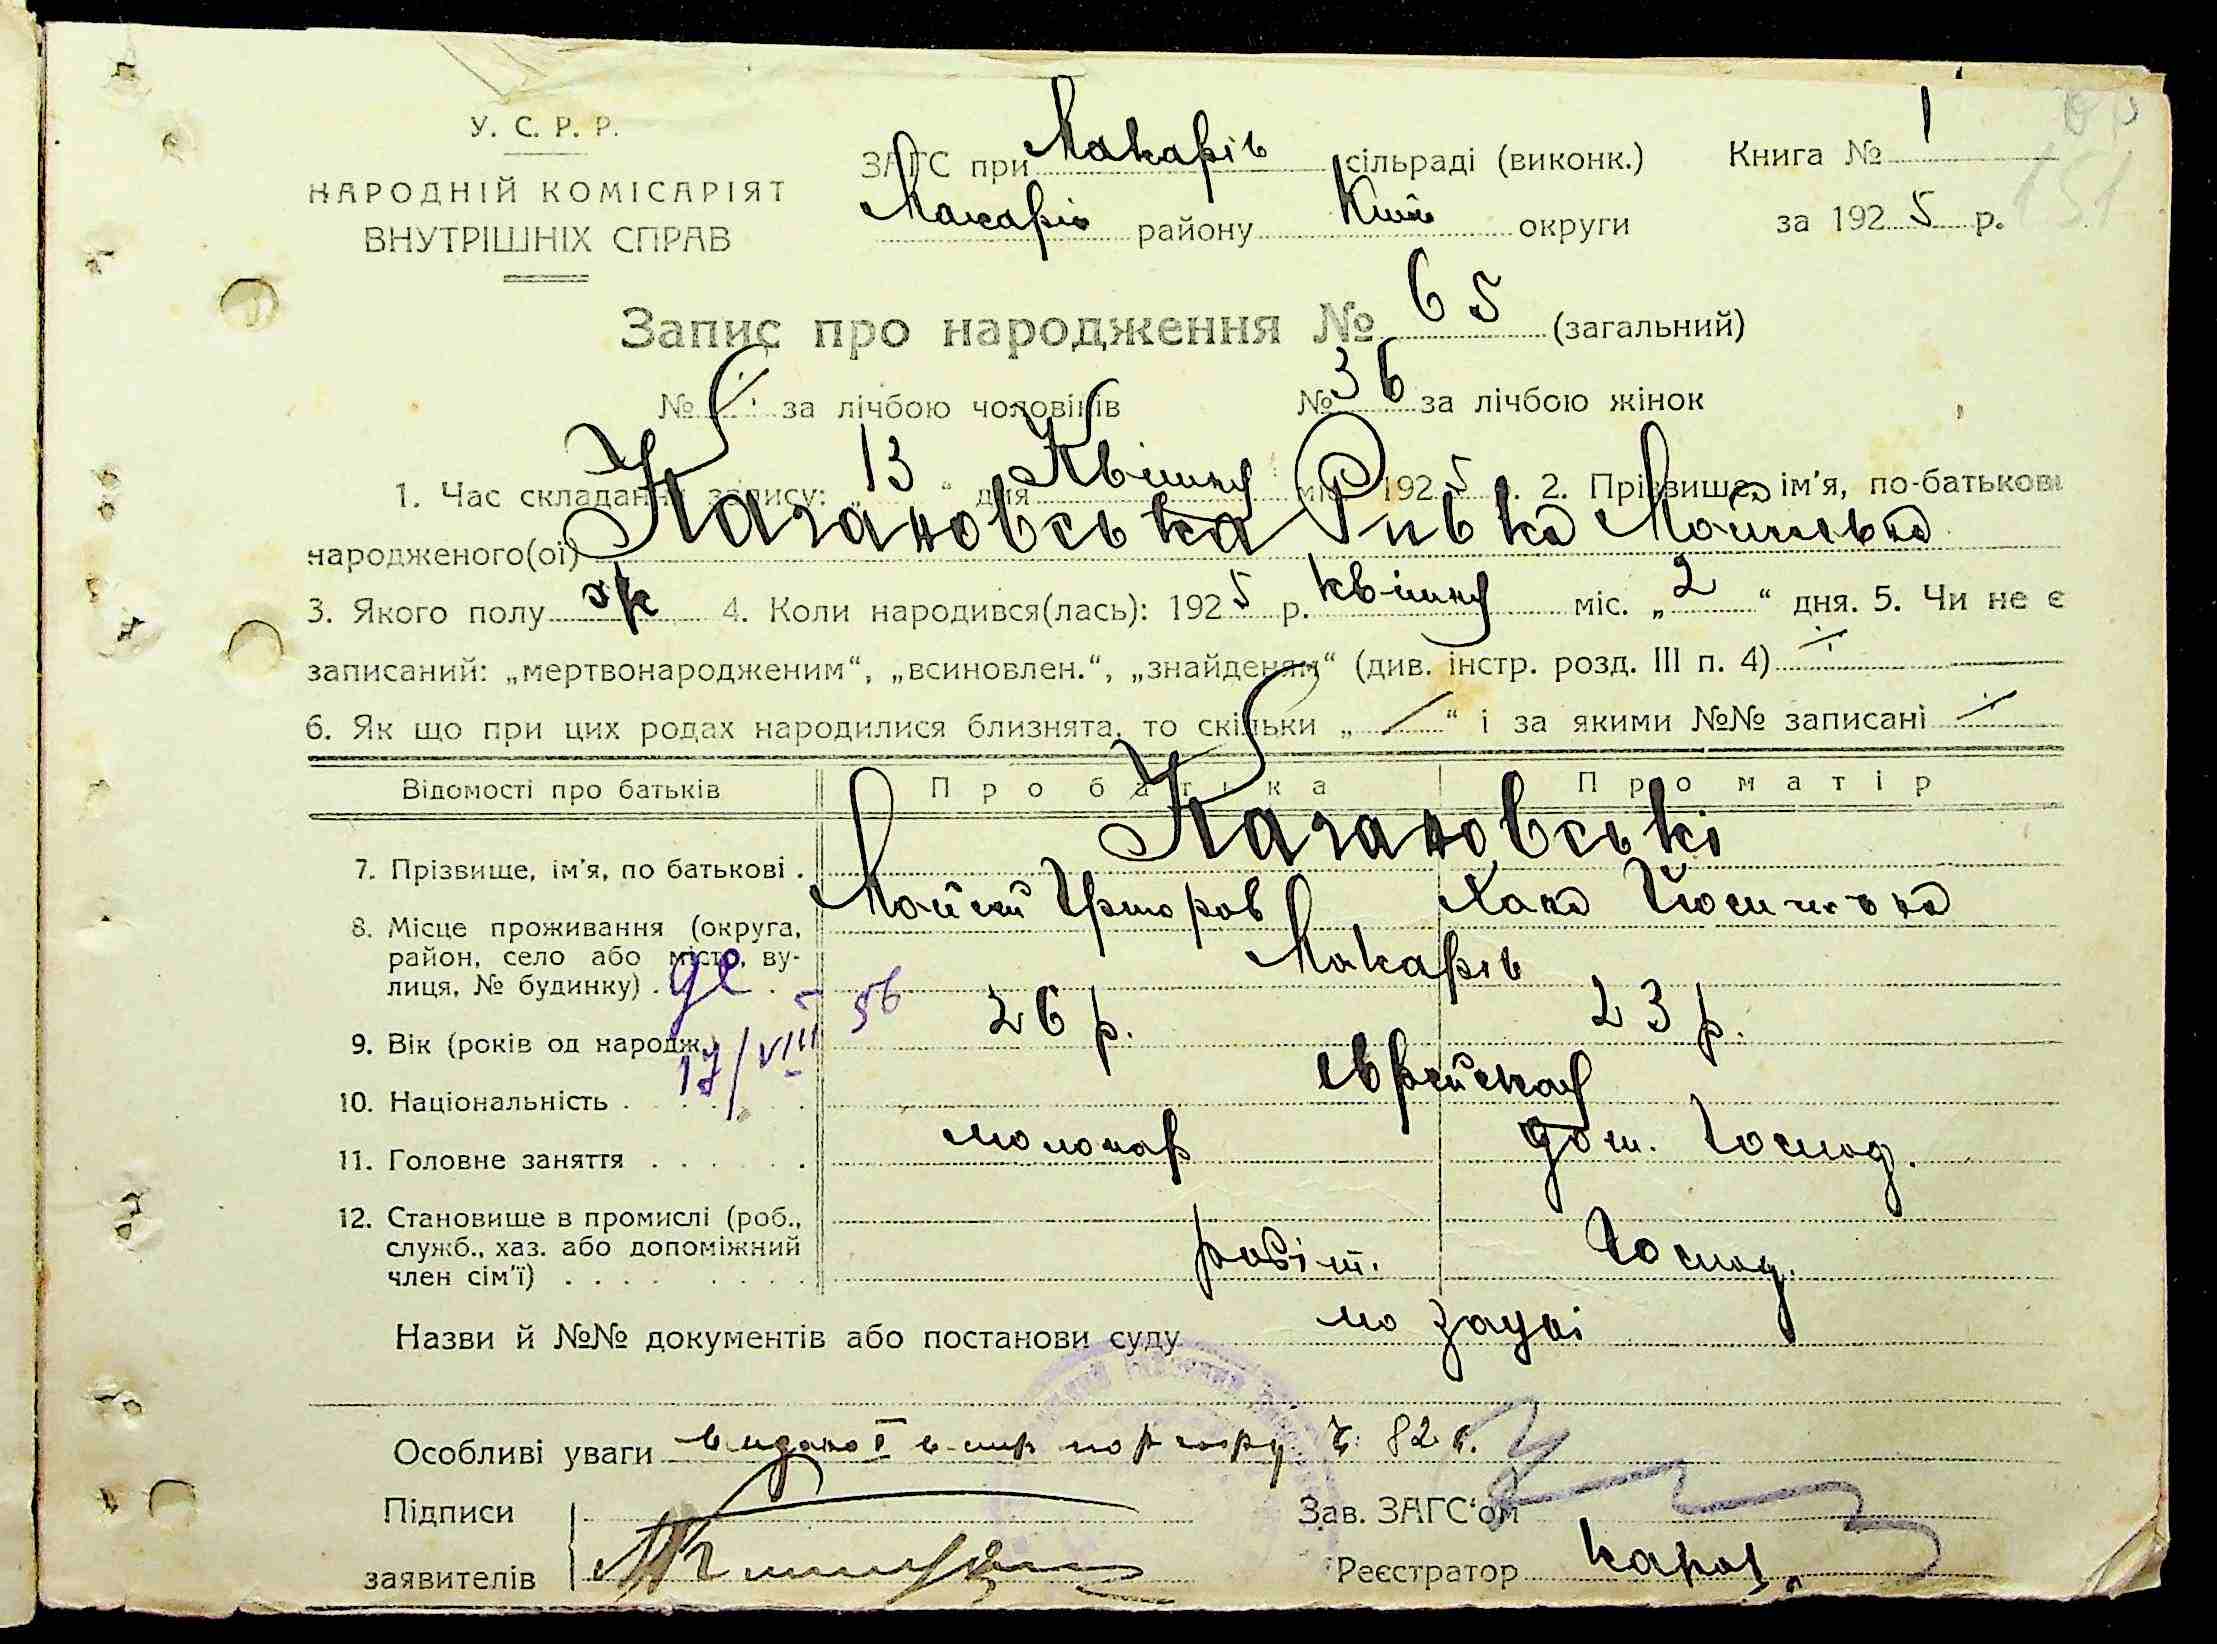 У. С. Р. Р.
НАРОДНІЙ КОМІСАРІЯТ
ВНУТРІШНІХ СПРАВ
ЗАГС при Макарів сільраді (виконк.) Книга № 1
Макарів району Київ округи за 1925 р.
151
Запис про народження № 65 (загальний)
№ за лічбою чоловіків № 36 за лічбою жінок
1. Час складання запису: „13“ дня Квітня міс. 1925 р. 2. Прізвище, ім'я, по-батькові
народженого(ої) Кагановська Ривка Мойсієвна
3. Якого полу ж 4. Коли народився(лась): 1925 р. квітня міс. „2“ дня. 5. Чи не є
записаний: „мертвонародженим“, „всиновлен.“, „знайденям“ (див. інстр. розд. III п. 4)
6. Як що при цих родах народилися близнята, то скільки „ “ і за якими №№ записані
Відомості про батьків Про батька Про матір
Кагановські
7. Прізвище, ім'я, по батькові . Мойсей Хана
8. Місце проживання (округа,
район, село або місто, ву-
лиця, № будинку) . Макарів
56
9. Вік (років од народж.) 26 р. 23 р.
17/VIII
10. Національність . єврейская
11. Головне заняття . . . . . . дом. господ.
12. Становище в промислі (роб.,
служб., хаз. або допоміжний
член сім'ї) . . . . робіт. господ.
Назви й №№ документів або постанови суду по заяві
Особливі уваги видано 82
Підписи
заявителів
Зав. ЗАГС'ом
Реєстратор